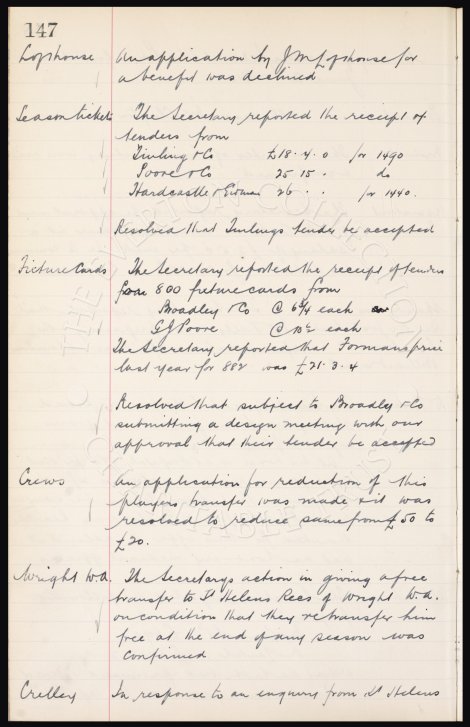 147
Lofthouse An application by J M Lofthouse for
a benefit was declined
Season tickets The Secretary reported the receipt of
tenders from
Tinling & Co £18. 4. 0 for 1490
Poore & Co 25 15 . do
Hardcastle & 26 . . for 1440.
Resolved that Tinlings tender be accepted
Fixture Cards The Secretary reported the receipt of tenders
for 800 fixture cards from
Broadley & Co @ each
G J Poore @ each
The Secretary reported that Formans price
last year for 882 was £21. 3. 4
Resolved that subject to Broadley & Co
submitting a design meeting with our
approval that their tender be accepted
Crews An application for reduction of this
players transfer was made & it was
resolved to reduce same from £50 to
£20.
Wright W.A. The Secretarys action in giving a free
transfer to St Helens Recs of Wright W.A.
on condition that they retransfer him
free at the end of any season was
confirmed
Crelley In response to an enquiry from St Helens